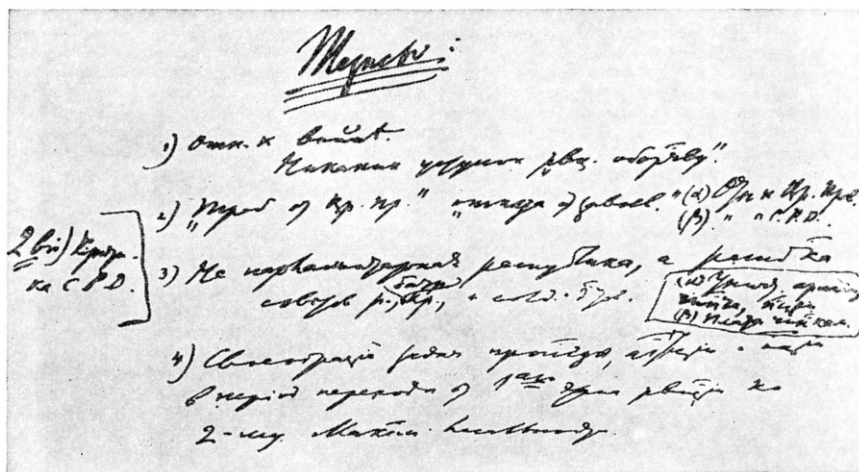 Тезисы:
1) Отн. к войнѣ.
Никаких уступок рвц. обор-ву".
2) „Треб. от Вр. пр." „отказа от завоев." (α) Отн. к Вр. прв.
(β) " к С.Р.Д.
2 bis) Критика С.Р.Д.
3) Не парламентарная республика, а республика
советов р., батр., кр., и солд. деп.
(α) Уничт. армии,
чин-ва, полиции
(β) Плата чин-кам.
4) Своеобразие задач пропаганды, агитации и
в период перехода от 1-го этапа рвции ко
2-му. Максим. легальности.